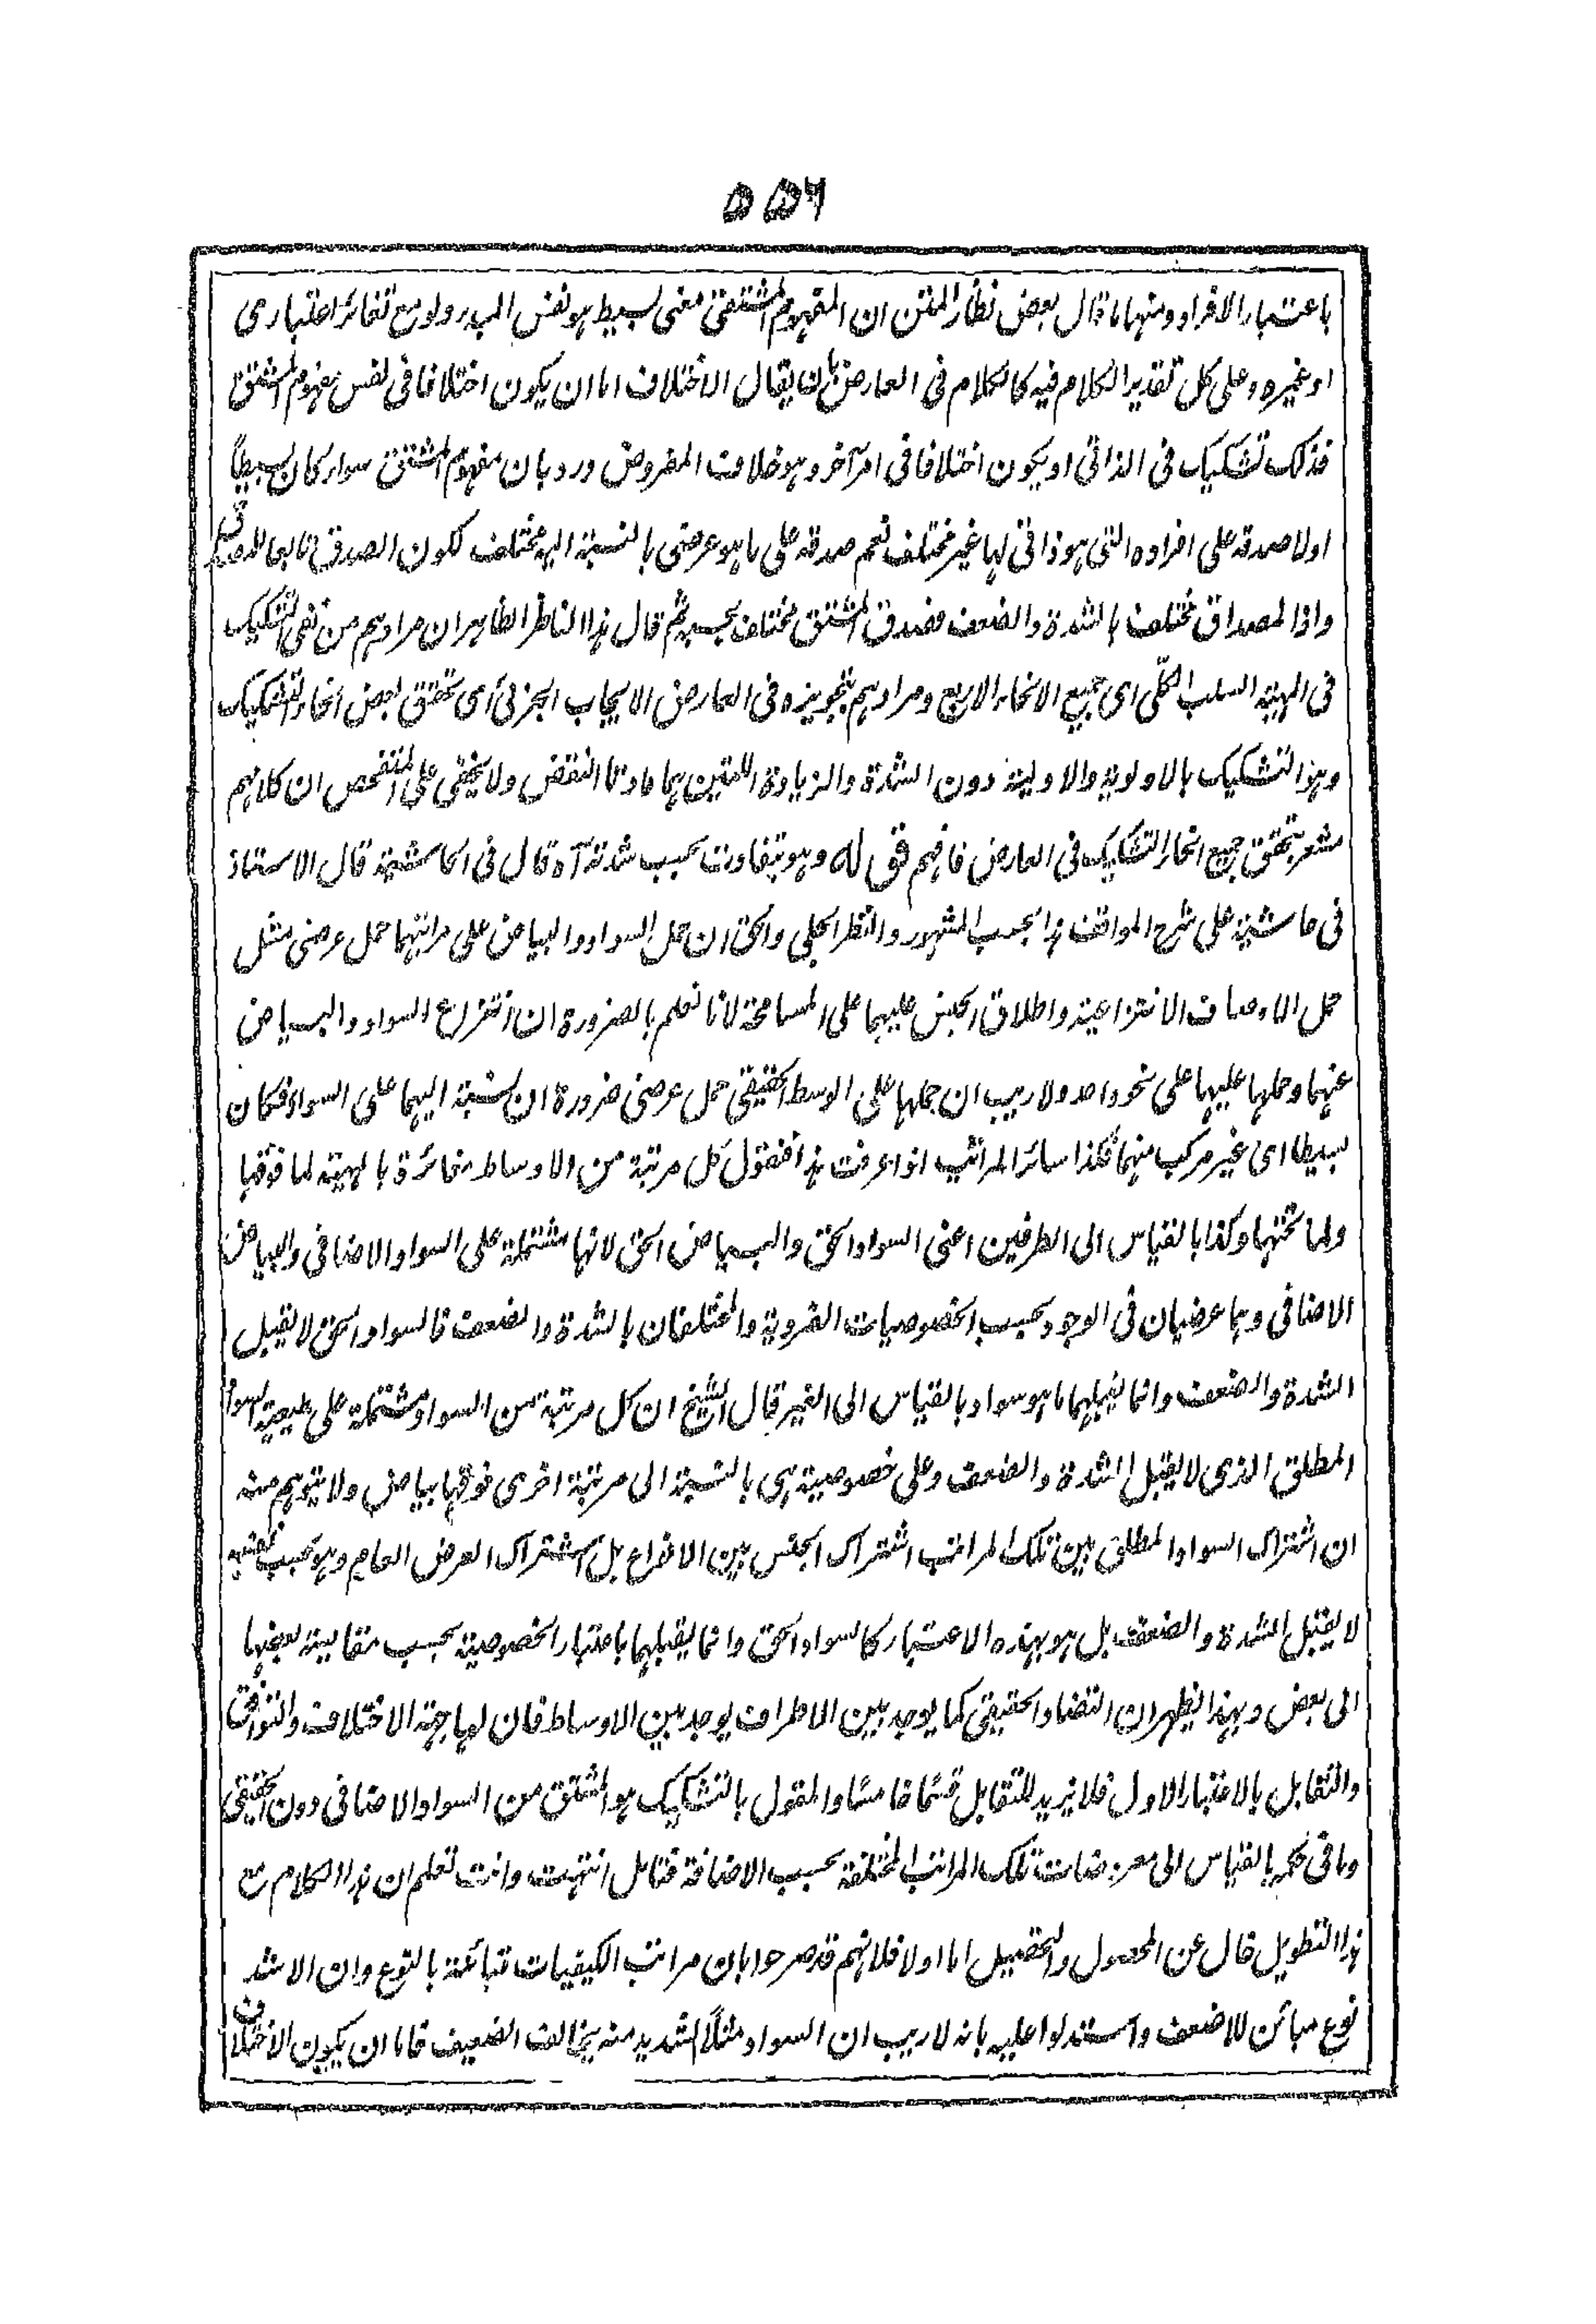 ٥٥٦
باعتبار الافراد ومنها ما قال بعض نظار المتن ان المفهوم المشتقى معنى بسيط هو نفس المبدء ولو مع تغائر اعتبارى
او غيره وعلى كل تقدير الكلام فيه كالكلام فى العارض بان يقال الاختلاف اما ان يكون اختلافا فى نفس مفهوم المشتق
فذلك تشكيك فى الذاتى او يكون اختلافا فى امر آخر وهو خلاف المفروض ورد بان مفهوم المشتق سواء كان بسيطاً
اولا صدقه على افراده التى هو ذاتى لها غير مختلف نعم صدقه على ما هو عرضى بالنسبة اليه مختلف لكون الصدق تابعا للمصداق
واذا المصداق مختلف بالشدة والضعف فصدق المشتق مختلف بحسبه ثم قال هذا الناظر الظاهر ان مرادهم من نفى التشكيك
فى المهية السلب الكلّى اى جميع الانحاء الاربع ومرادهم بتجويزه فى العارض الايجاب الجزئى اى تحقق بعض انحاء التشكيك
وهو التشكيك بالاولوية والاولية دون الشدة والزيادة اللتين هما مادتا النقض ولا يخفى على المتفحص ان كلامهم
مشعر بتحقق جميع انحاء التشكيك فى العارض فافهم قوله وهو يتفاوت بحسب شدته آه قال فى الحاشية قال الاستاذ
فى حاشيته على شرح المواقف هذا بحسب المشهور والنظر الجلى والحق ان حمل السواد والبياض على مراتبهما حمل عرضى مثل
حمل الاوصاف الانتزاعية واطلاق الجنس عليهما على المسامحة لانا نعلم بالضرورة ان انتزاع السواد والبياض
عنهما وحملها عليهما على نحو واحد ولا ريب ان حملها على الوسط الحقيقى حمل عرضى ضرورة ان نسبته اليهما على السواء فكان
بسيطا اى غير مركب منهما فكذا سائر المراتب اذا عرفت هذا فنقول كل مرتبة من الاوساط مغائرة بالمهية لما فوقها
ولما تحتها وكذا بالقياس الى الطرفين اعنى السواد الحق والبياض الحق لانها مشتملة على السواد الاضافى والبياض
الاضافى وهما عرضيان فى الوجود بحسب الخصوصيات الفردية والمختلفان بالشدة والضعف فالسواد الحق لا يقبل
الشدة والضعف وانما يقبلهما ما هو سواد بالقياس الى الغير قال الشيخ ان كل مرتبة من السواد مشتملة على طبيعة السواد
المطلق الذى لا يقبل الشدة والضعف وعلى خصوصية هى بالنسبة الى مرتبة اخرى فوقها بياض ولا يتوهم منه
ان اشتراك السواد المطلق بين تلك المراتب اشتراك الجنس بين الانواع بل اشتراك العرض العام وهو بحسب نفسه
لا يقبل الشدة والضعف بل هو بهذه الاعتبار كالسواد الحق وانما يقبلهما باعتبار الخصوصية بحسب مقايسة بعضها
الى بعض وبهذا يظهر ان التضاد الحقيقى كما يوجد بين الاطراف يوجد بين الاوساط فان لها جهة الاختلاف والتوافق
والتقابل بالاعتبار الاول فلا يزيد للتقابل قسمًا خامسًا والمقول بالتشكيك هو المشتق من السواد الاضافى دون الحقيقى
وما فى حكمه بالقياس الى معروضات تلك المراتب المختلفة بحسب الاضافة فتامل انتهت وانت تعلم ان هذا الكلام مع
هذا التطويل خال عن المحصول والتحصيل اما اولا فلانهم قد صرحوا بان مراتب الكيفيات متبائنة بالنوع وان الاشد
نوع مبائن للاضعف واستدلوا عليه بانه لا ريب ان السواد مثلاً الشديد منه يخالف الضعيف فاما ان يكون الاختلاف